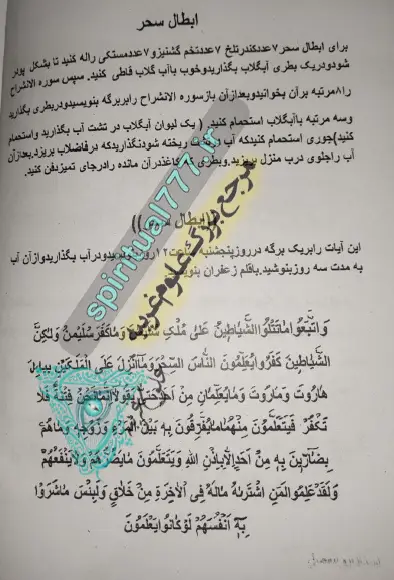 ابطال سحر
برای ابطال سحر۷عددکندرتلخ ۷عددتخم گشنیزو۷عددمستکی راله کنید تا بشکل پودر
شودودریک بطری آبگلاب بگذاریدوخوب باآب گلاب قاطی کنید. سپس سوره الانشراح
را۸مرتبه برآن بخوانیدوبعدازآن بازسوره الانشراح رابربرگه بنویسیدودربطری بگذارید
وسه مرتبه باآبگلاب استحمام کنید. ( یک لیوان آبگلاب در تشت آب بگذارید واستحمام
کنید)جوری استحمام کنیدکه آب ریخته شودنگذاریدکه درفاضلاب بریزد.بعدازآن
آب راجلوی درب منزل بریزید.وبطری کاغذدرآن مانده رادرجای تمیزدفن کنید.
((ابطال سحر))
این آیات رابریک برگه درروزپنجشنبه ساعت۱۲روز بنویسیدودرآب بگذاریدوازآن آب
به مدت سه روزبنوشید.باقلم زعفران
وَاتَّبَعُوا مَاتَتْلُوا الشَّيَاطِينُ عَلَى مُلْكِ سُلَيْمَانَ وَمَا كَفَرَ سُلَيْمَنُ وَلَكِنَّ
الشَّيَاطِينَ كَفَرُوا يُعَلِّمُونَ النَّاسَ السِّحْرَ وَمَا أُنْزِلَ عَلَى الْمَلَكَيْنِ بِبَابِلَ
هَارُوتَ وَمَارُوتَ وَمَا يُعَلِّمَانِ مِنْ أَحَدٍ حَتَّى يَقُولَا إِنَّمَا نَحْنُ فِتْنَةٌ فَلَا
تَكْفُرْ فَيَتَعَلَّمُونَ مِنْهُمَا مَا يُفَرِّقُونَ بِهِ بَيْنَ الْمَرْءِ وَزَوْجِهِ وَمَا هُمْ
بِضَارِّينَ بِهِ مِنْ أَحَدٍ إِلَّا بِإِذْنِ اللهِ وَيَتَعَلَّمُونَ مَا يَضُرُّهُمْ وَلَا يَنْفَعُهُمْ
وَلَقَدْ عَلِمُوا لَمَنِ اشْتَرَاهُ مَا لَهُ فِي الْآخِرَةِ مِنْ خَلَاقٍ وَلَبِئْسَ مَا شَرَوْا
بِهِ أَنْفُسَهُمْ لَوْ كَانُوا يَعْلَمُونَ
spiritual777.ir
مرجع بزرگ علوم غریبه